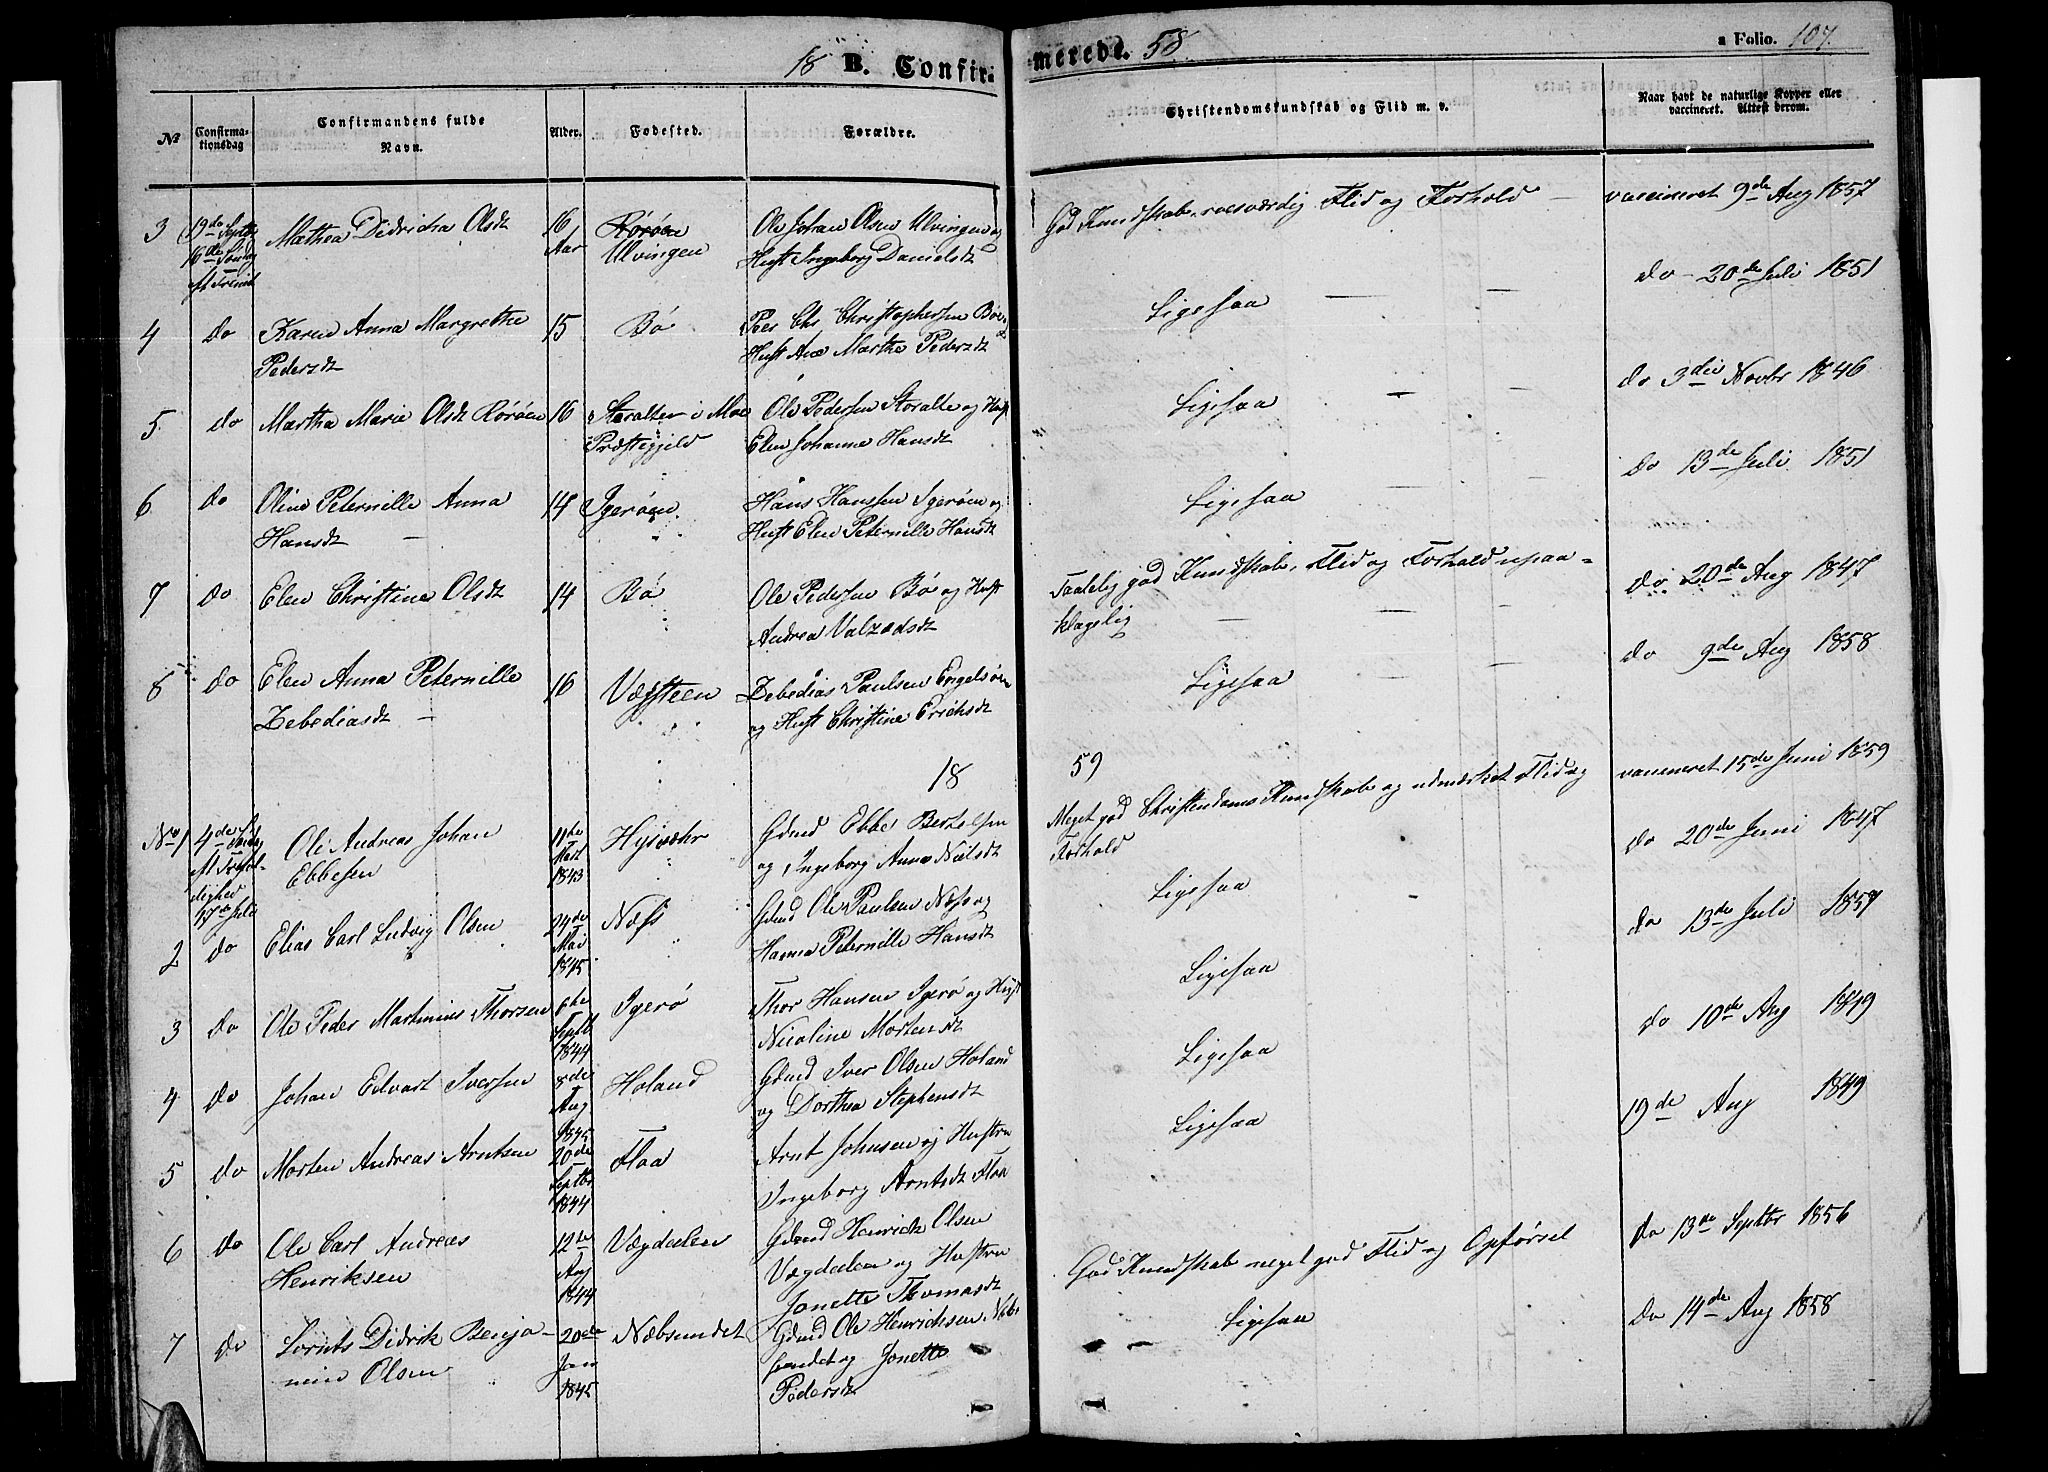 18 B. Confirmerede. 58
a Folio. 107.
No
Confirmationsdag
Confirmandens fulde Navn.
Alder.
Fødested.
Forældre.
Christendomskundskab og Flid m. v.
Naar havt de naturlige Kopper eller vaccineret. Attest derom.
3 19de Septbr 16de Sønd eft Trinit Mathea Didricha Olsdt 16 Aar Rørøen Ulvingen
Ole Johan Olsen Ulvingen og
Hust Ingeborg Danielsdt
God Kundskab, roesværdig Flid og Forhold – vaccineret 9de Aug 1857
4 do Karen Anna Margrethe
Pedersdt
15 Bø
Peer Chr Christophersen Bøe
Hust Ane Marthe Pedersdt
Ligesaa – –
do 20de Juli 1851
5 do Martha Marie Olsdt Rørøen 16 Storalten i Moe
Præstegjeld
Ole Pedersen Storalte og Hust
Elen Johanne Hansdt
Ligesaa – –
do 3die Novbr 1846
6 do Oline Peternille Anna
Hansdt –
14 Igerøen
Hans Hanssen Igerøen og
Hust Elen Peternille Hansdt
Ligesaa –
do 13de Juli 1851
7 do Elen Christine Olsdt 14 Bø
Ole Pedersen Bø og Hust
Andrea Valzedsdt
Taalelig god Kundskab, Flid og Forhold upaa-
klagelig – – –
do 20de Aug 1847
8 do Elen Anna Peternille
Zebediasdt –
16 Vægsteen
Zebedias Paulsen Engelsøen
og Hust Christine Erichsdt
Ligesaa – –
do 9de Aug 1858
18 59
No 1 4de Sønd eft Trefoldighed 17de Juli
Ole Andreas Johan
Ebbesen
11te 1843
Hysvær
Gdmd Ebbe Bertelsen
og Ingeborg Anna Nielsdt
Meget god Christendoms Kundskab og udmærket Flid og
Forhold
vaccineret 15de Juni 1859
2 do Elias Carl Ludvig Olsen
24de Mai 1845
Næss
Gdmd Ole Paulsen Næss og
Hanna Peternille Hansdt
Ligesaa
do 20de Juni 1847
3 do Ole Peder Martinius Thorsen
6te Septb 1844
Igerø
Thor Hansen Igerø og Hust
Nicoline Mortensdt
Ligesaa
do 13de Juli 1857
4 do Johan Edvart Iversen
8de Aug 1845
Holand
Gdmd Iver Olsen Holand
og Dorthea Stephensdt
Ligesaa
do 10de Aug 1849
5 do Morten Andreas Arntsen
20de Septbr 1844
Flaa
Arnt Johnsen og Hustru
Ingeborg Arntsdt Flaa
Ligesaa
19de Aug 1849
6 do Ole Carl Andreas
Henriksen
12te Aug 1844
Vægdalen
Gdmd Henrick Olsen
Vægdalen og Hustru
Jonette Thomasdt
God Kundskab meget god Flid og Opførsel
do 13de Septbr 1856
7 do Lornts Didrik Benja-
min Olsen
20de Jan 1845
Næbsundet
Gdmd Ole Henrichsen Næb-
sundet og Jonette
Pedersdt
Ligesaa
do 14de Aug 1858